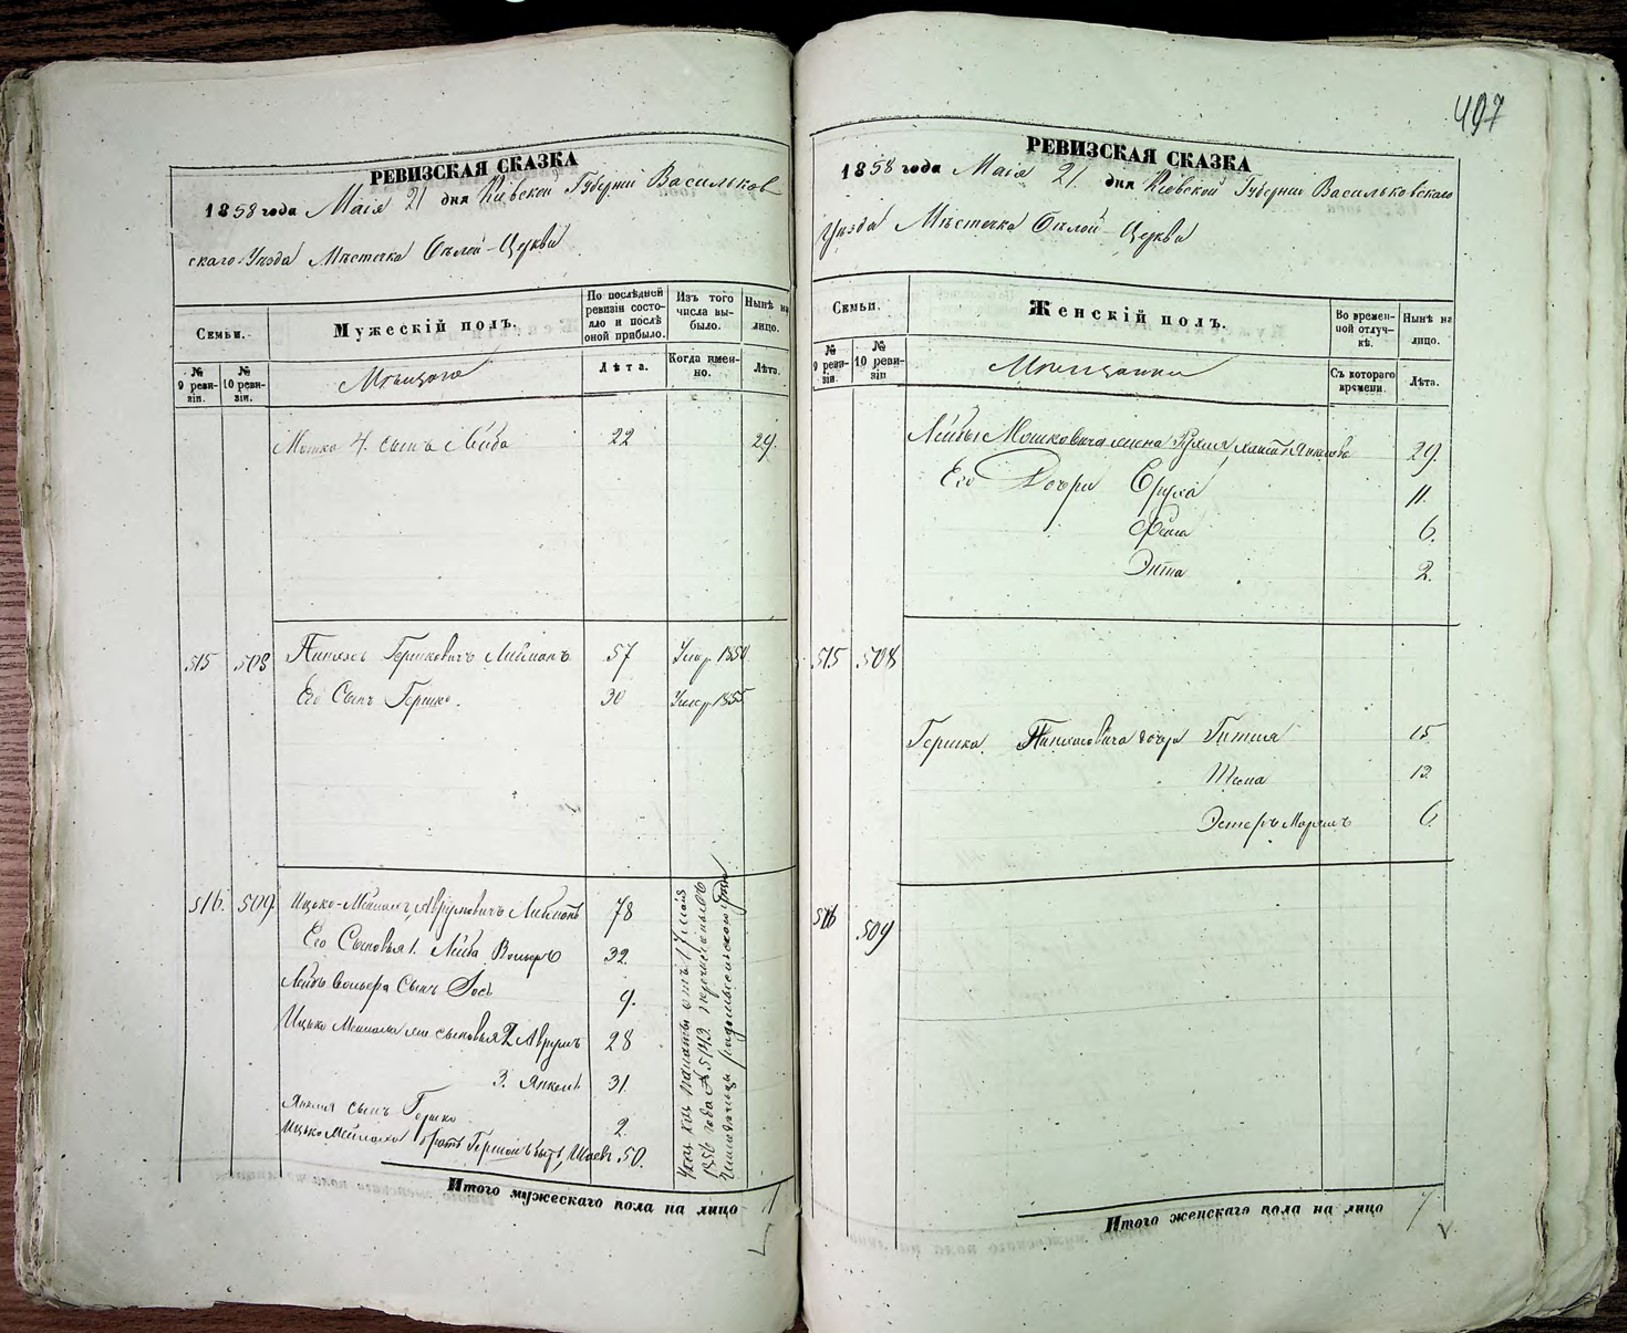 РЕВИЗСКАЯ СКАЗКА
1858 года Маія 21 дня Кіевской Губерніи Васильков
скаго Уѣзда Мѣстечка Бѣлой-Церкви
Семьи.
Мужескій полъ.
По послѣдней ревизіи состояло и послѣ оной прибыло.
Изъ того числа выбыло.
Нынѣ на лицо.
№ 9 ревизіи.
№ 10 ревизіи.
Мѣщане
Лѣта.
Когда именно.
Лѣта.
Мошка 4. сынъ Лейба 22 29.
515 508 Пинхасъ Гершковичъ Либманъ 57 Умер. 1850
Его Сынъ Гершко. 30 Умер. 1855
516. 509 Ицько-Мейлахъ Аврумовичъ Либманъ 78
Его Сыновья 1. Лейба Вольфъ 32.
Лейбы Вольфа Сынъ Іось 9.
Ицько Мейлаха сыновья 2 Аврумъ 28
3. Янкель 31.
Янкеля сынъ Гершко 2.
Ицько Мейлаха братъ 50.
Указ. Каз. Палаты отъ 17 маія
1856 года № 5142. перечисленъ въ
Итого мужескаго пола на лицо 1
497
РЕВИЗСКАЯ СКАЗКА
1858 года Маія 21. дня Кіевской Губерніи Васильковскаго
Уѣзда Мѣстечка Бѣлой-Церкви
Семьи.
Женскій полъ.
Во временной отлучкѣ.
Нынѣ на лицо.
№ 9 ревизіи.
№ 10 ревизіи
Мѣщанки
Съ котораго времени.
Лѣта.
Лейбы Мошковича жена Рухля 29.
Его Дочери Сруха 11.
Фейга 6.
Энта 2.
515 508
Гершка Пинхасовича дочери Гитля 15
Шейна 12
Эстеръ Маріамъ 6.
516 509
Итого женскаго пола на лицо 7